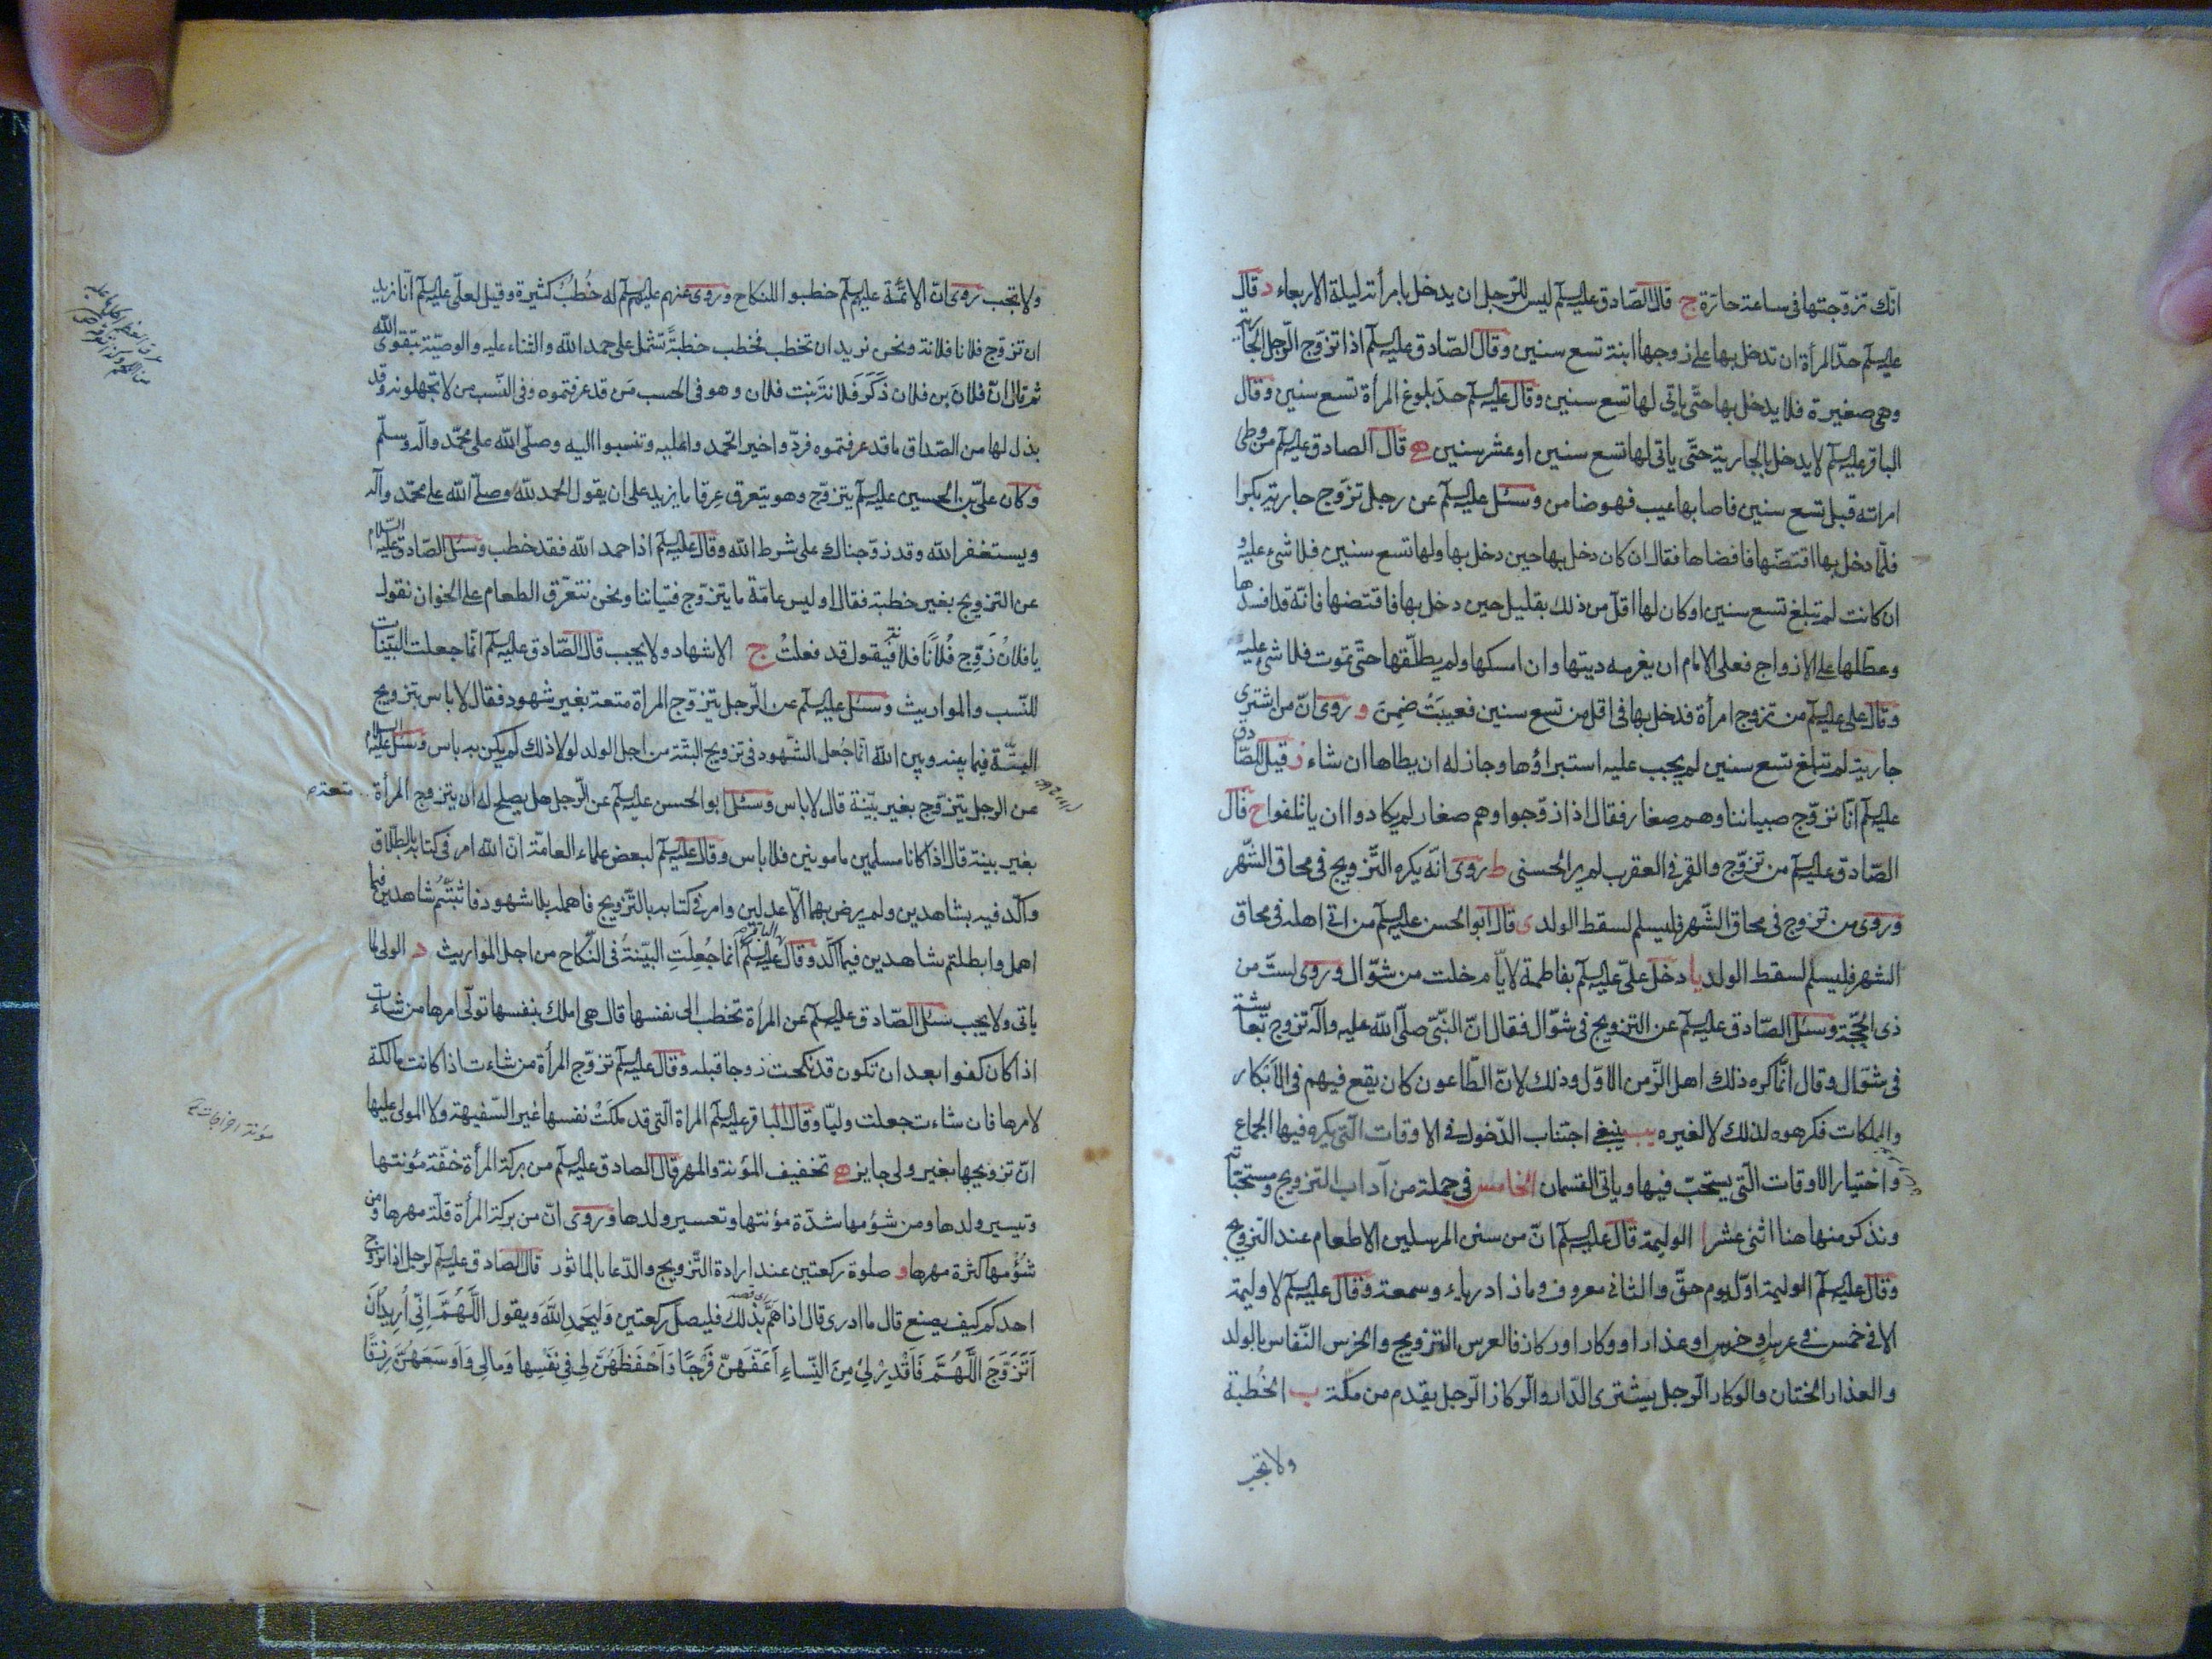 انّك تزوّجتها فى ساعة حارّة ج قال الصّادق عليه السلم ليس للرّجل ان يدخل بامرأته ليلة الاربعاء د قال
عليه السلم حدّ المرأة ان تدخل بها على زوجها ابنة تسع سنين وقال الصّادق عليه السلم اذا تزوّج الرّجل الجارية
وهى صغيرة فلا يدخل بها حتّى ياتى لها تسع سنين وقال عليه السلم حدّ بلوغ المرأة تسع سنين وقال
الباقر عليه السلم لا يدخل بالجارية حتّى ياتى لها تسع سنين او عشر سنين ه قال الصادق عليه السلم من وطى
امراته قبل تسع سنين فاصابها عيب فهو ضامن وسئل عليه السلم عن رجل تزوّج جارية بكرا
فلمّا دخل بها اقتضّها فافضاها فقال ان كان دخل بها حين دخل بها ولها تسع سنين فلا شىء عليه و
ان كانت لم تبلغ تسع سنين او كان لها اقلّ من ذلك بقليل حين دخل بها فاقتضها فانّه قد افسدها
وعطّلها على الازواج فعلى الامام ان يغرمه ديتها وان امسكها ولم يطلّقها حتّى تموت فلا شىء عليه
وقال على عليه السلم من تزوج امرأة فدخل بها فى اقل من تسع سنين فعيبَتْ ضمِنَ و روى انّ من اشترى
جارية لم تبلغ تسع سنين لم يجب عليه استبراؤها وجاز له ان يطاها ان شاء ز قيل للصّادق
عليه السلم انّا نزوّج صبياننا وهم صغار فقال اذا زوّجوا وهم صغار لم يكادوا ان ياتلفوا ح قال
الصّادق عليه السلم من تزوّج والقمر فى العقرب لم ير الحسنى ط روى انّه يكره التّزويج فى محاق الشّهر
وروى من تزوج فى محاق الشّهر فليسلم لسقط الولد ى قال ابو الحسن عليه السلم من اتى اهله فى محاق
الشهر فليسلم لسقط الولد يا دخل علىّ عليه السلم بفاطمة لايّام خلت من شوّال وروى لستّ من
ذى الحجّة وسئل الصّادق عليه السلم عن التزويج فى شوّال فقال انّ النّبىّ صلّى الله عليه وآله تزوج بعايشة
فى شوّال وقال انّما كره ذلك اهل الزّمن الاوّل وذلك لانّ الطّاعون كان يقع فيهم فى الابكار
والملكات فكرهوه لذلك لا لغيره يب ينبغى اجتناب الدّخول فى الاوقات الّتى يكره فيها الجماع
واختيار الاوقات الّتى يستحبّ فيها وياتى القسمان الخامس فى جملة من آداب التزويج ومستحبّاته
ونذكر منها هنا اثنى عشر ا الوليمة قال عليه السلم انّ من سنن المرسلين الاطعام عند التزويج
وقال عليه السلم الوليمة اوّل يوم حقّ والثانى معروف وما زاد رياء وسمعة وقال عليه السلم لا وليمة
الا فى خمس فى عرس او خرس او عذار او وكار او ركاز فالعرس التزويج والخرس النّفاس بالولد
والعذار الختان والوكار الرّجل يشترى الدّار والرّكاز الرّجل يقدم من مكّة ب الخُطبة
ولا تجب
ولا تجب روى انّ الائمّة عليهم السلم خطبوا للنكاح وروى عنهم عليهم السلم له خُطبٌ كثيرة وقيل لعلّى عليه السلم انّا نريد
ان نزوّج فلانا فلانة ونحن نريد ان تخطب فخطب خطبةً تشتمل على حمد الله والثناء عليه والوصيّة بتقوى الله
ثم قال انّ فلان بن فلان ذَكَرَ فلانة بنت فلان وهو فى الحسب مَن قد عرفتموه وفى النّسب من لا تجهلونه وقد
بذل لها من الصّداق ما قد عرفتموه فردّوا خيرا تحمدوا عليه وتنسبوا اليه وصلّى الله على محمّد وآله وسلّم
وكان علىّ بن الحسين عليه السلم يتزوّج وهو يتعرق عرقا ما يزيد على ان يقول الحمد لله وصلّى الله على محمّد وآله
ويستغفر الله وقد زوّجناك على شرط الله وقال عليه السلم اذا حمد الله فقد خطب وسئل الصّادق عليه السّلام
عن التزويج بغير خطبة فقال او ليس عامّة ما يتزوّج فتياننا ونحن نتعرّق الطعام على الخوان نقول
يا فلانُ زَوِّج فُلانًا فلانة فيقول قد فعلتُ ج الاشهاد ولا يجب قال الصّادق عليه السلم انّما جعلت البيّنات
للنّسب والمواريث وسئل عليه السلم عن الرّجل يتزوّج المراة متعة بغير شهود فقال لا باس بتزويج
البتّة فيما بينه وبين الله انّما جُعل الشّهود فى تزويج البتّة من اجل الولد لولا ذلك لم يكن به باس وسئل عليه السلام
عن الرجل يتزوّج بغير بيّنة قال لا باس وسئل ابو الحسن عليه السلم عن الرّجل هل يصلح له ان يتزوج المرأة متعة
بغير بينة قال اذا كانا مسلمين مامونين فلا باس وقال عليه السلم لبعض علماء العامّة انّ الله امر فى كتابه بالطّلاق
واكّد فيه بشاهدين ولم يرض بهما الّا عدلين وامر فى كتابه بالتّزويج فاهمله بلا شهود فاثبتّم شاهدين فيما
اهمل وابطلتم شاهدين فيما اكّد وقال الباقر عليه السلم انّما جُعِلَتِ البيّنةُ فى النّكاح من اجل المواريث د الولى لما
ياتى ولا يجب سئل الصّادق عليه السلم عن المراة تخطب الى نفسها قال هى املك بنفسها تولّى امرها من شاءت
اذا كان كفوا بعد ان تكون قد نكحت زوجا قبله وقال عليه السلم تزوّج المرأة من شاءت اذا كانت مالكة
لامرها فان شاءت جعلت وليّا وقال الباقر عليه السلم المراة الّتى قد ملكَتْ نفسها غير السّفيهة ولا المولى عليها
انّ تزويجها بغير ولى جايز ه تخفيف المؤنة والمهر قال الصادق عليه السلم من بركة المرأة خفّة مؤنتها
وتيسير ولدها ومن شؤمها شدّة مؤنتها وتعسير ولدها وروى انّ من بركة المرأة قلّة مهرها ومن
شؤمها كثرة مهرها و صلوة ركعتين عند ارادة التّزويج والدّعا بالماثور قال الصادق عليه السلم لرجل اذا تزوّج
احدكم كيف يصنع قال ما ادرى قال اذا همَّ بذلك فليصلّ ركعتين وَليَحمدِ اللهَ ويقول اللَّهُمَّ اِنّى اُريدُ اَن
اَتَزَوَّجَ اللَّهُمَّ فَاقْدِرْ لِى مِنَ النِّساءِ اَعَفَّهنّ فَرْجًا وَاَحْفَظَهُنَّ لِى فِى نَفْسِها وَمالِى وَاَوسَعَهُنّ رِزقًا
متعة